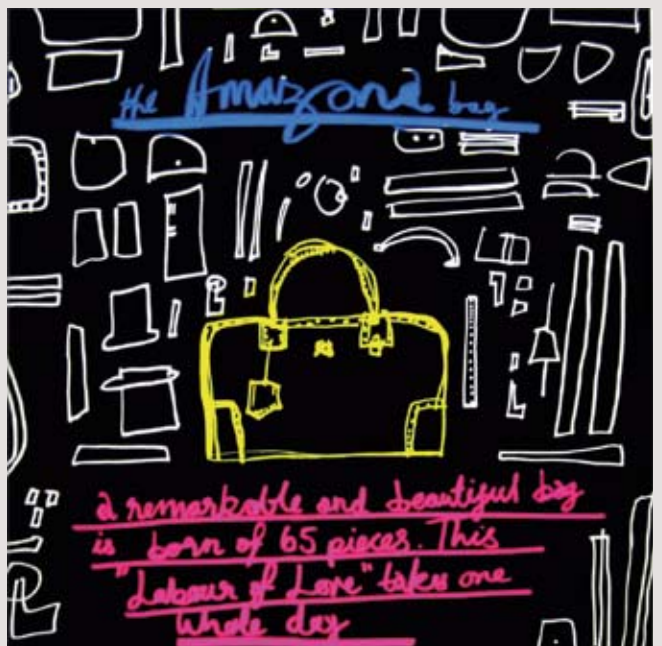 the Amazona bag
a remarkable and beautiful bag
is born of 65 pieces. This
"Labour of Love" takes one
whole day